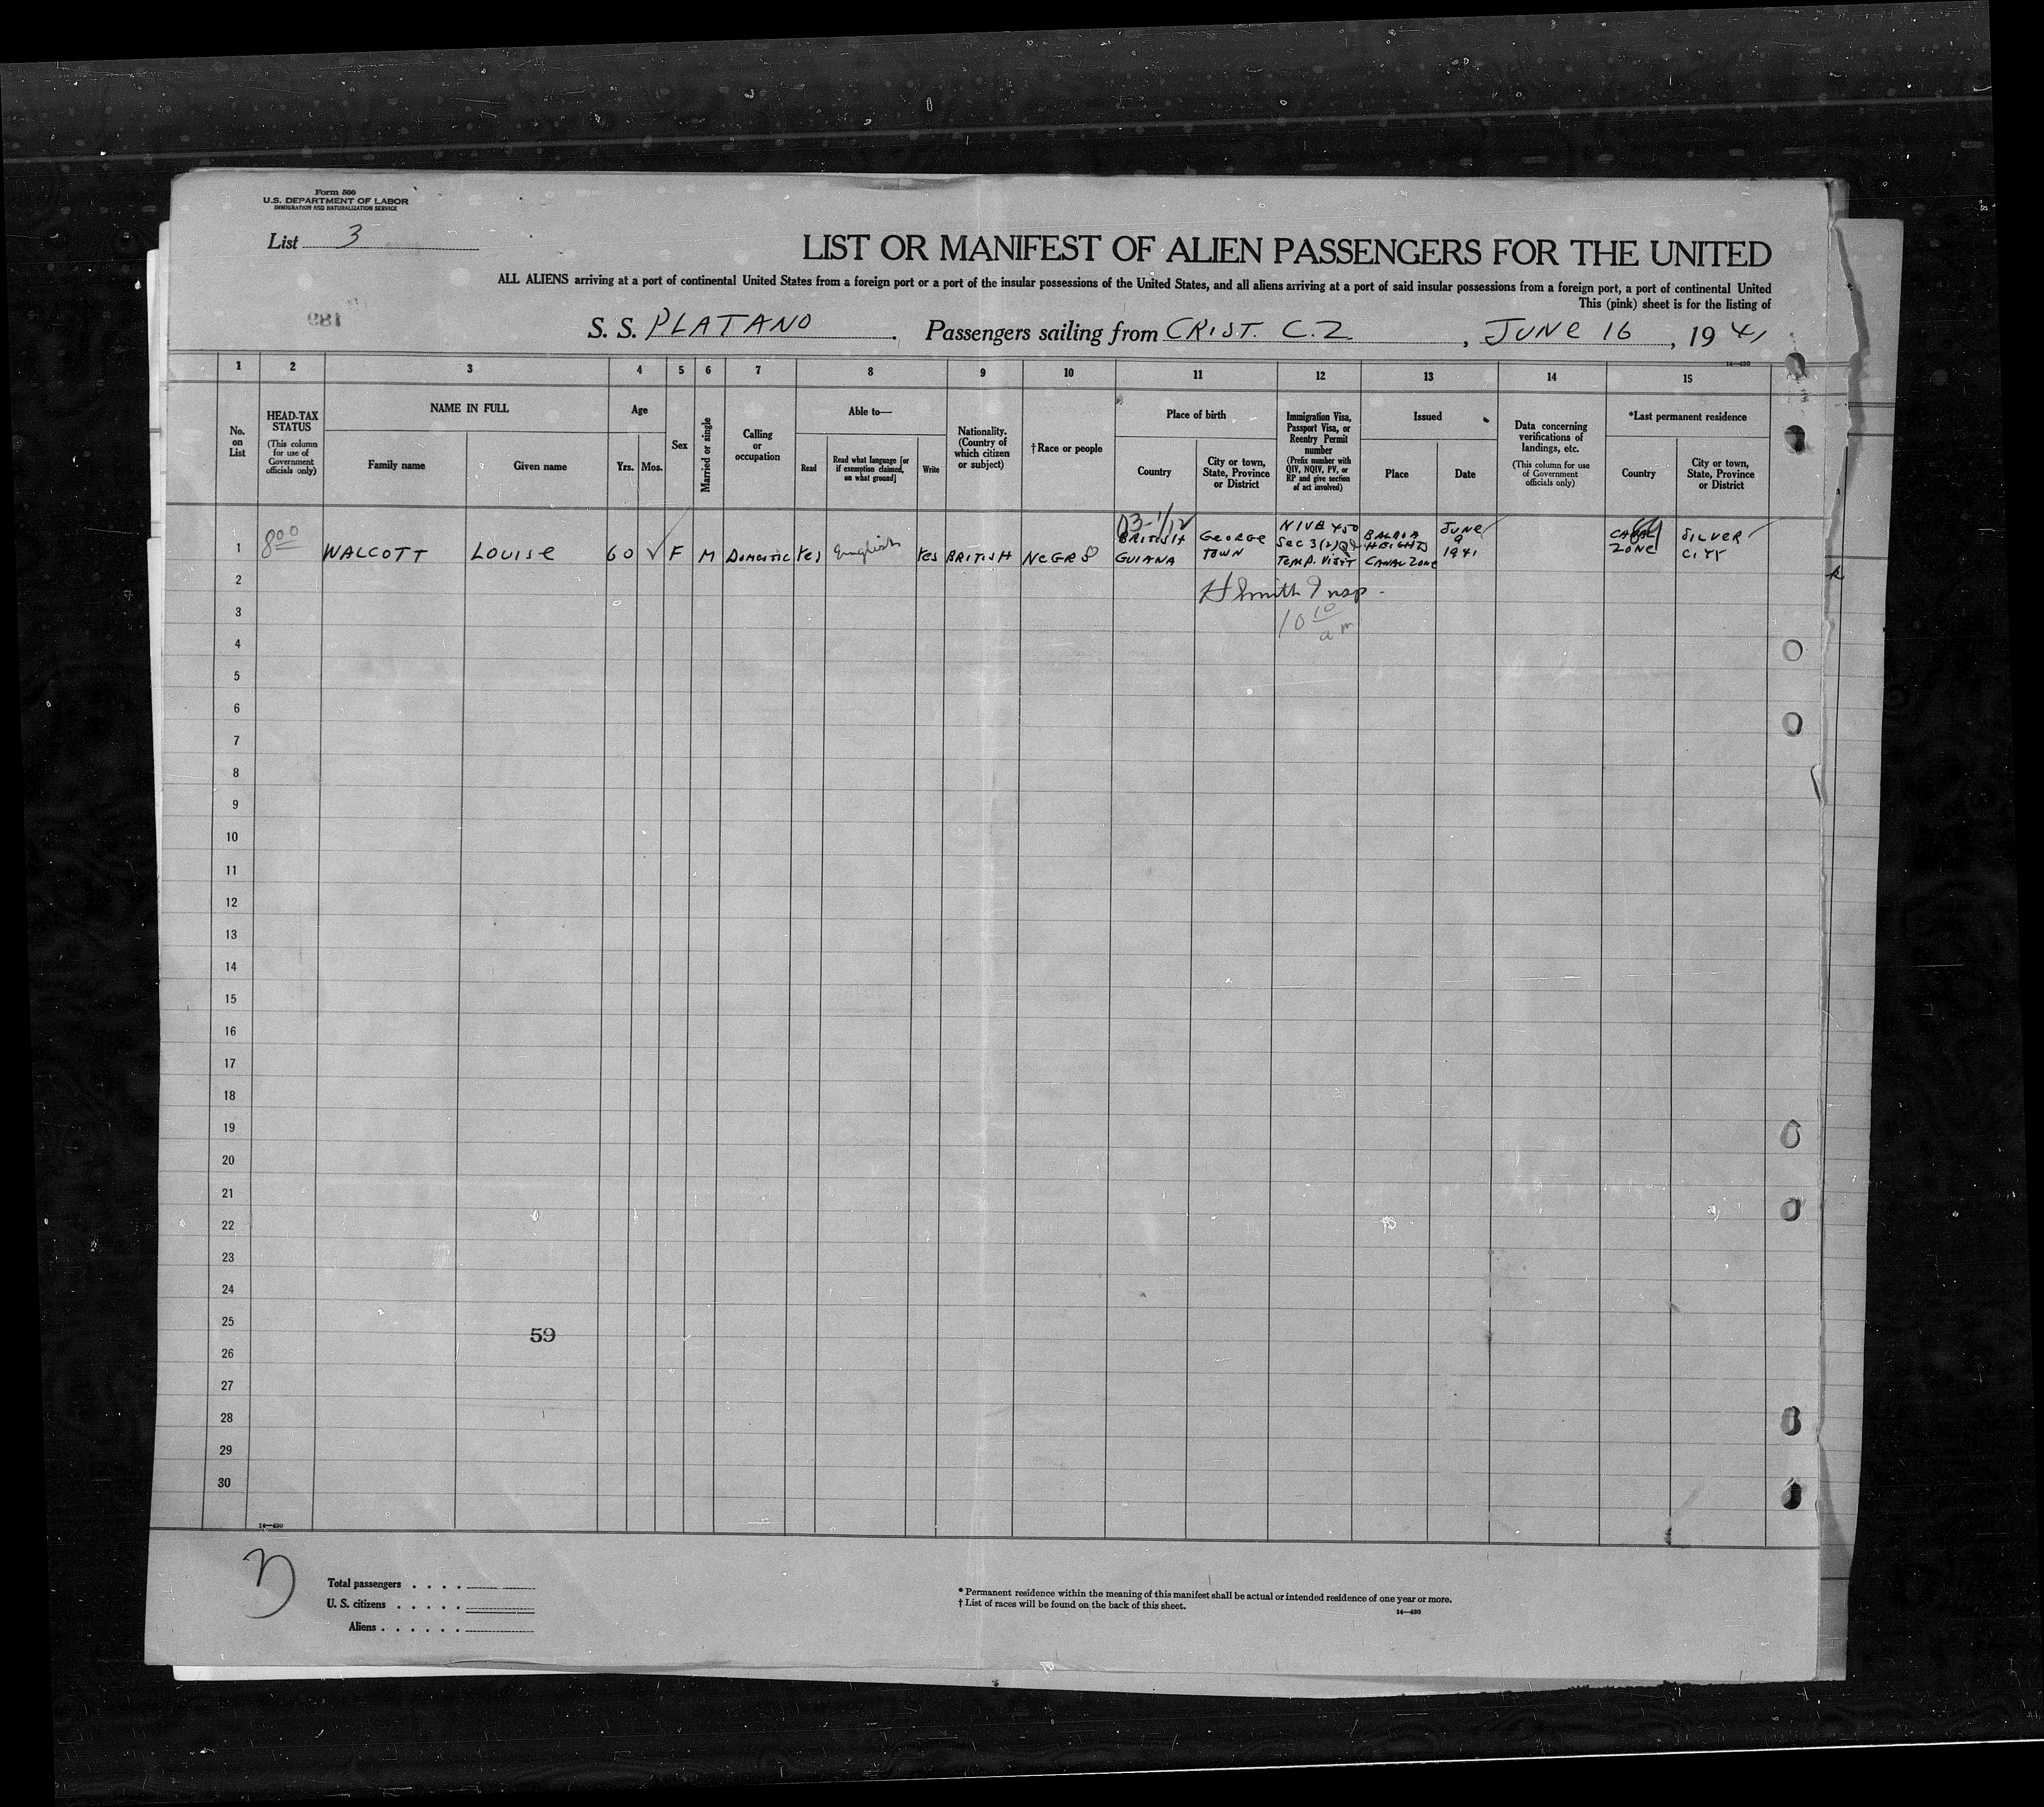 Form 500
U.S. DEPARTMENT OF LABOR
IMMIGRATION AND NATURALIZATION SERVICE
List 3
LIST OR MANIFEST OF ALIEN PASSENGERS FOR THE UNITED
ALL ALIENS arriving at a port of continental United States from a foreign port or a port of the insular possessions of the United States, and all aliens arriving at a port of said insular possessions from a foreign port, a port of continental United
This (pink) sheet is for the listing of
S. S. PLATANO. Passengers sailing from CRIST. C.Z., JUNE 16, 1941
14—430
1 2 3 4 5 6 7 8 9 10 11 12 13 14 15
No. on List
HEAD-TAX STATUS
(This column for use of Government officials only)
NAME IN FULL
Family name
Given name
Age
Yrs. Mos.
Sex
Married or single
Calling or occupation
Able to—
Read
Read what language [or if exemption claimed, on what ground]
Write
Nationality. (Country of which citizen or subject)
†Race or people
Place of birth
Country
City or town, State, Province or District
Immigration Visa, Passport Visa, or Reentry Permit number
(Prefix number with QIV, NQIV, PV, or RP and give section of act involved)
Issued
Place
Date
Data concerning verifications of landings, etc.
(This column for use of Government officials only)
*Last permanent residence
Country
City or town, State, Province or District
1 8 00 WALCOTT LOUISE 60 F M DOMESTIC Yes English Yes BRITISH NEGRO BRITISH GUIANA GEORGE TOWN Sec 3(2) TEMP. VISIT BALBOA HEIGHTS CANAL ZONE JUNE 9 1941 CANAL ZONE SILVER CITY
2 H Smith Insp.
3 10 10 am
4
5
6
7
8
9
10
11
12
13
14
15
16
17
18
19
20
21
22
23
24
25
59
26
27
28
29
30
14—430
Total passengers . . . .
U. S. citizens . . . . .
Aliens . . . . . .
* Permanent residence within the meaning of this manifest shall be actual or intended residence of one year or more.
† List of races will be found on the back of this sheet.
14—430